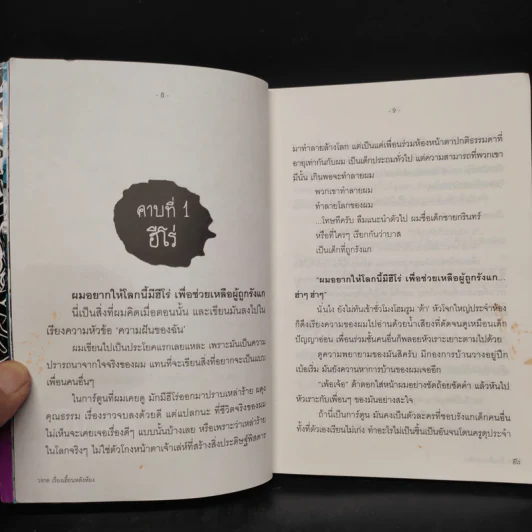 - 8 -
คาบที่ 1
ฮีโร่
ผมอยากให้โลกนี้มีฮีโร่ เพื่อช่วยเหลือผู้ถูกรังแก
นี่เป็นสิ่งที่ผมคิดเมื่อตอนนั้น และเขียนมันลงไปใน
เรียงความหัวข้อ 'ความฝันของฉัน'
ผมเขียนไปเป็นประโยคแรกเลยแหละ เพราะมันเป็นความ
ปรารถนาจากใจจริงของผม แทนที่จะเขียนสิ่งที่อยากจะเป็นแบบ
เพื่อนคนอื่นๆ
ในการ์ตูนที่ผมเคยดู มักมีฮีโร่ออกมาปราบเหล่าร้าย ผดุง
คุณธรรม เรื่องราวจบลงด้วยดี แต่แปลกนะ ที่ชีวิตจริงของผม
ไม่เห็นจะเคยเจอเรื่องดีๆ แบบนั้นบ้างเลย หรือเพราะว่าเหล่าร้าย
ในโลกจริงๆ ไม่ใช่ตัวโกงหน้าตาเจ้าเล่ห์ที่สร้างสิ่งประดิษฐ์พิสดาร
วาด เรื่องเฮี้ยนหลังห้อง
- 9 -
มาทำลายล้างโลก แต่เป็นแค่เพื่อนร่วมห้องหน้าตาปกติธรรมดาที่
อายุเท่ากันกับผม เป็นเด็กประถมทั่วไป แต่ความสามารถที่พวกเขา
มีนั้น เกินพอจะทำลายผม
พวกเขาทำลายผม
ทำลายโลกของผม
...โทษทีครับ ลืมแนะนำตัวไป ผมชื่อเด็กชายกรินทร์
หรือที่ใครๆ เรียกกันว่าบาส
เป็นเด็กที่ถูกรังแก
"ผมอยากให้โลกนี้มีฮีโร่ เพื่อช่วยเหลือผู้ถูกรังแก...
ฮ่าๆ ฮ่าๆ"
นั่นไง ยังไม่ทันเข้าชั่วโมงโฮมรูม 'ต้า' หัวโจกใหญ่ประจำห้อง
ก็ดึงเรียงความของผมไปอ่านด้วยน้ำเสียงที่ดัดจนดูเหมือนเด็ก
ปัญญาอ่อน เพื่อนร่วมชั้นคนอื่นก็พลอยหัวเราะเยาะตามไปด้วย
ดูความพยายามของมันสิครับ มีกองการบ้านวางอยู่ปึก
เบ้อเริ่ม มันยังควานหาการบ้านของผมเจออีก
"เพ้อเจ้อ" ต้าตอกใส่หน้าผมอย่างชัดถ้อยชัดคำ แล้วหันไป
หัวเราะกับเพื่อนๆ ของมันอย่างสะใจ
ถ้านี่เป็นการ์ตูน มันคงเป็นตัวละครที่ชอบรังแกเด็กคนอื่น
ทั้งที่ตัวเองเรียนไม่เก่ง ทำอะไรไม่เป็นชิ้นเป็นอันจนโดนครูดุประจำ